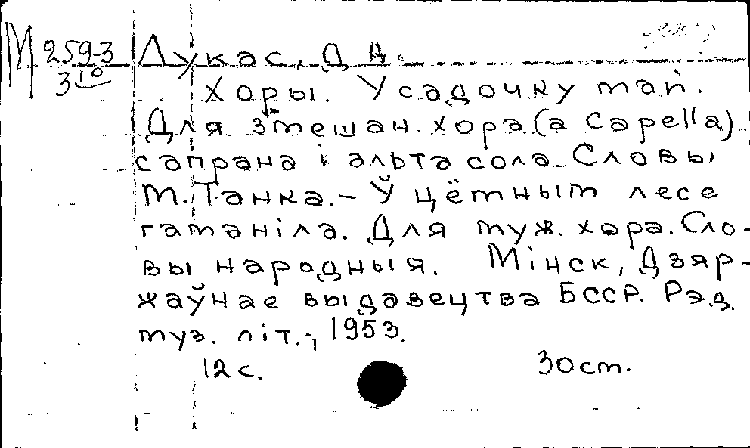 М 259-3 Лукас, Д Д.
3 10
Хоры. У садочку маі.
Для змешан. хора (a capella)
сапрана і альта сола. Словы
М. Танка. – Ў цёмным лесе
гаманіла. Для муж. хора. Сло-
вы народныя. Мінск, Дзяр-
жаўнае выдавецтва БССР. Рэд.
муз. літ., 1953.
12 с. 30 см.